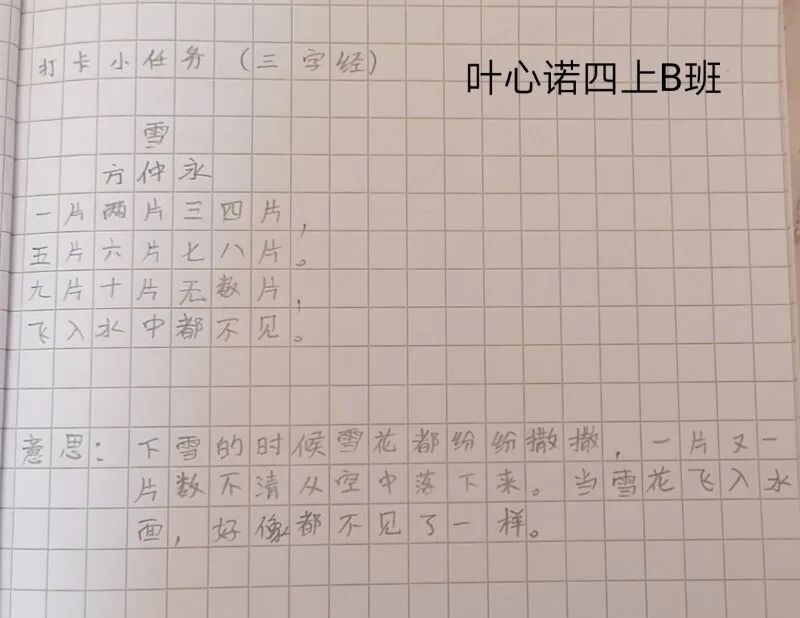 打卡小任务（三字经）
叶心诺四上B班
雪
方仲永
一片两片三四片，
五片六片七八片。
九片十片无数片，
飞入水中都不见。
意思：下雪的时候雪花都纷纷撒撒，一片又一
片数不清从空中落下来。当雪花飞入水
面，好像都不见了一样。